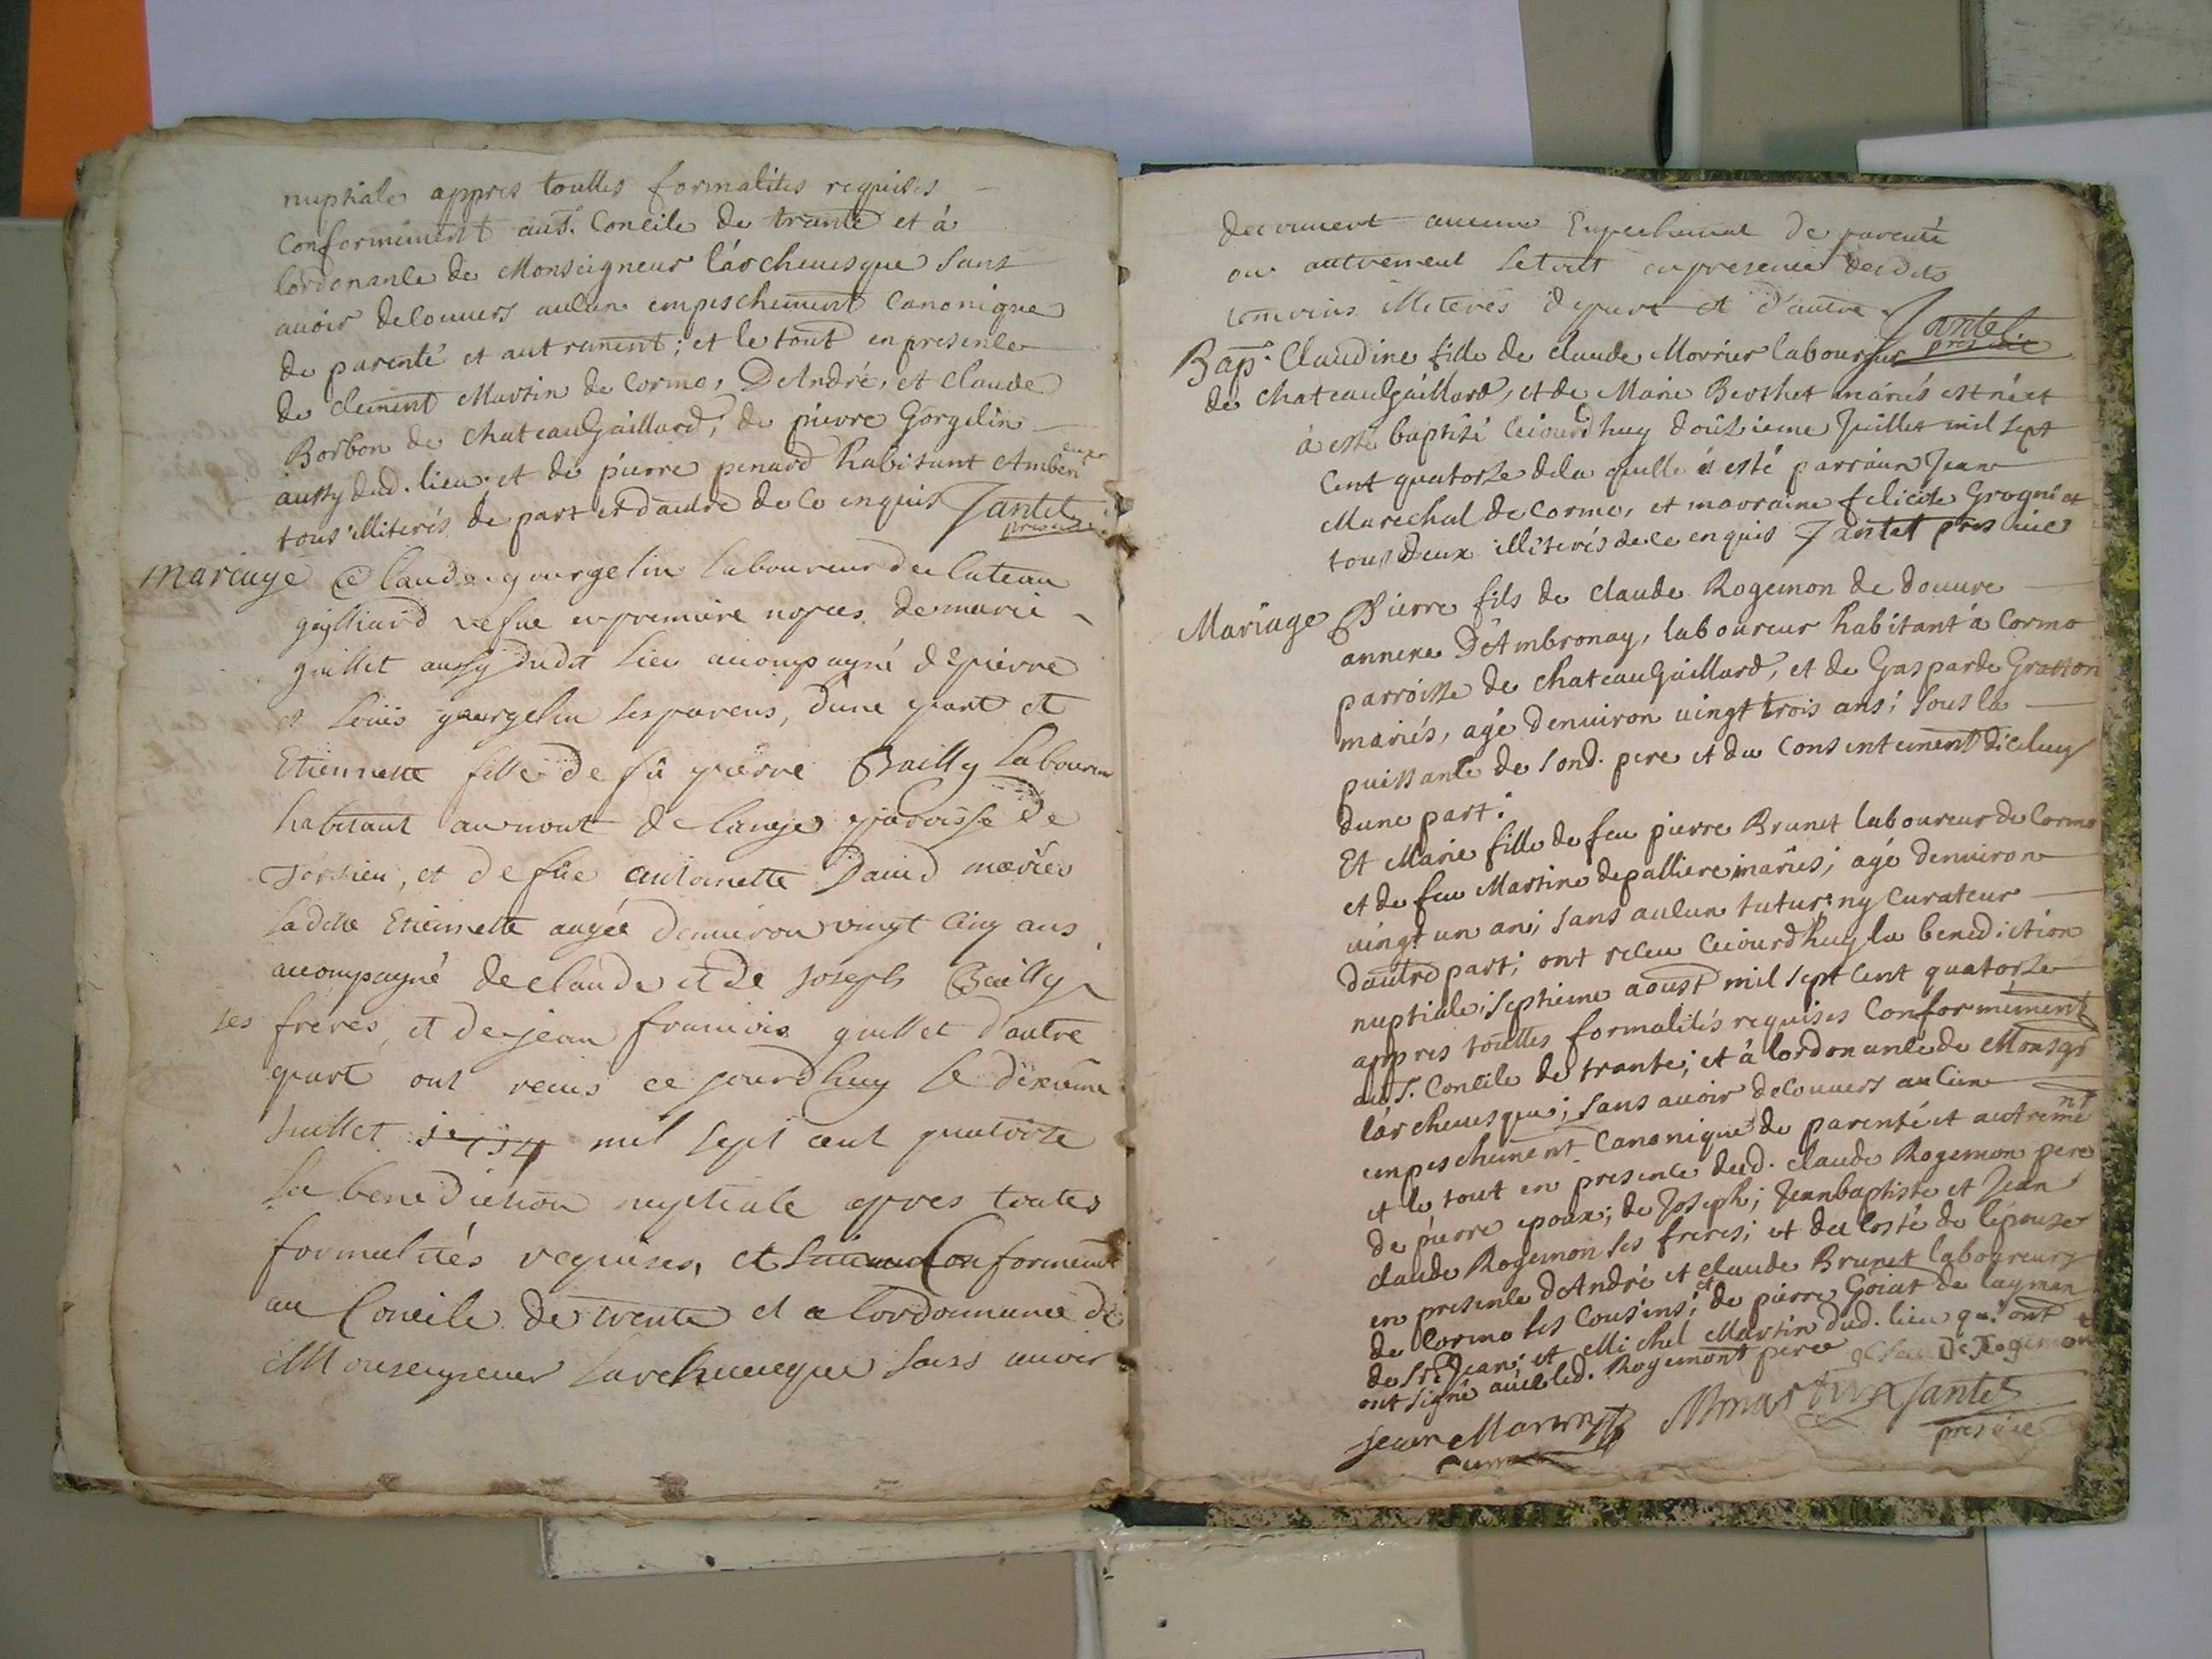 nuptiale appres touttes formalités requises
conformement au S. Concile de trante et à
lordonance de Monseigneur lárcheuesque sans
auoir decouuers aucun empeschement canonique
de parenté et autrement; et le tout en presence
de clement Martin de Cormo, D'André, et claude
Borbon de chateauGaillard, de pierre Gorgelin
aussy dud. lieu et de pierre penard habitant Amben
tous illiterés de part et d'autre de ce enquis Jantet
mariage Claude gourgelin laboureur de chateau
gaylliard vefue en premiere nopces de marie
guillet aussy dudit lieu acompagné de pierre
et Loüis gourgelin ses parens, d'une part et
Etiennette fille de fû pierre Bailly laboureur
habitant au mont de lange paroisse de
et de füe antoinette David mariés
laditte Etiennette augée d'enuiron vingt cinq ans
acompagné de claude et de Joseph Bailly
ses freres, et de jean francois guillet d'autre
part ont receus ce jourd'huy le dixieme
Juillet mil sept cent quatorze
la benediction nuptiale apres toutes
formalités requises, et Conformement
au Concile de trente et a l'ordonnance de
Monseigneur larcheueque sans auoir
decouuert aucun Enpechement de parenté
ou autrement le tout en presence desdits
temoins illiterés de part et d'autre Jantet
Bap. Claudine fille de claude Morrier laboureur pres uic
de chateauGaillard, et de Marie Berthet mariés est née et
à esté baptisé ceiourd'huy doûzieme Juillet mil sept
cent quatorze de la quelle à esté parrain Jean
Marechal de Cormo, et marraine felicite Grognet
tous deux illiterés de ce enquis Jantet pres uic
Mariage Pierre fils de claude Rogemon de douure
annexe D'Ambronay, laboureur habitant à Cormo
parroisse de chateauGaillard, et de Gasparde Gratton
mariés, agé denuiron uingt trois ans; sous la
puissance de sond. pere et du consentement diceluy
dune part.
Et Marie fille de feu pierre Brunet laboureur de Cormo
et de feu Martine depalliere mariés; agé denuiron
uingt un an; sans aucun tuteur ny curateur
dautre part; ont receu ceiourdhuy la benediction
nuptiale; septieme aoust mil sept cent quatorze
appres touttes formalités requises conformement
au S. Concile de trante; et à lordonance de Monsgr
lárcheuesque; sans auoir decouuers aucun
empeschement canonique de parenté et autremēnt
et le tout en presence dud. claude Rogemon pere
de pierre epoux; de Joseph; Jeanbaptiste et Jean
claude Rogemon ses freres; et du costé de lépouse
en presence dAndré et claude Brunet laboureurs
de Cormo ses cousins; et de pierre Goiat de layman
de St Jean; et Michel Martin dud. lieu qui ont
ont signé auec led. Rogemont pere Claude Rogemont
jean Martin MMartin Jantet
pres uic